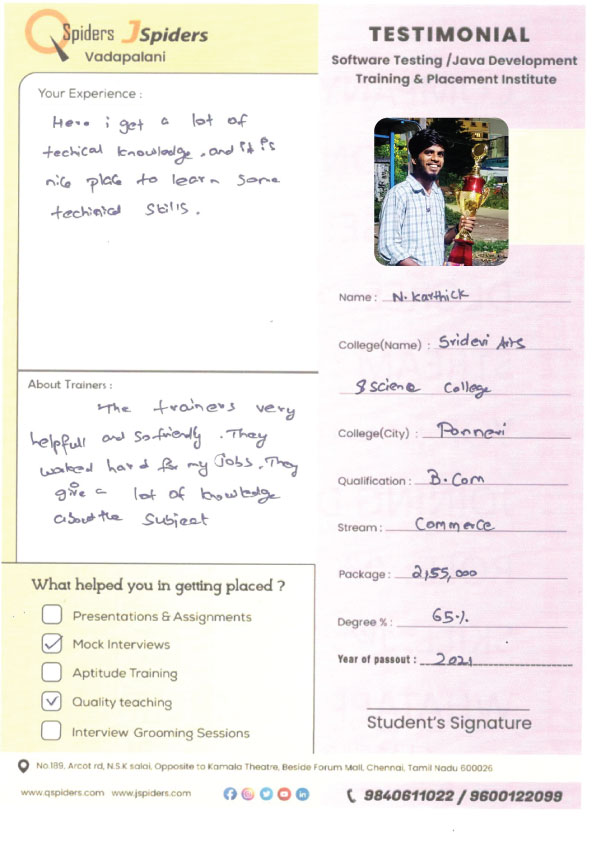 QSpiders JSpiders
Vadapalani
Your Experience :
Here i get a lot of
techical knowledge. and it is
nice place to learn some
techinical skills.
About Trainers :
The trainers very
helpfull and so friendly. They
worked hard for my Jobs. They
give a lot of knowledge
about the Subject
What helped you in getting placed ?
Presentations & Assignments
Mock Interviews
Aptitude Training
Quality teaching
Interview Grooming Sessions
TESTIMONIAL
Software Testing /Java Development
Training & Placement Institute
Name : N. Karthick
College(Name) : Sridevi Arts
& Science College
College(City) : Ponneri
Qualification : B.Com
Stream : Commerce
Package : 2,55,000
Degree % : 65%
Year of passout : 2021
Student's Signature
No.189, Arcot rd, N.S.K salai, Opposite to Kamala Theatre, Beside Forum Mall, Chennai, Tamil Nadu 600026
www.qspiders.com www.jspiders.com
9840611022 / 9600122099